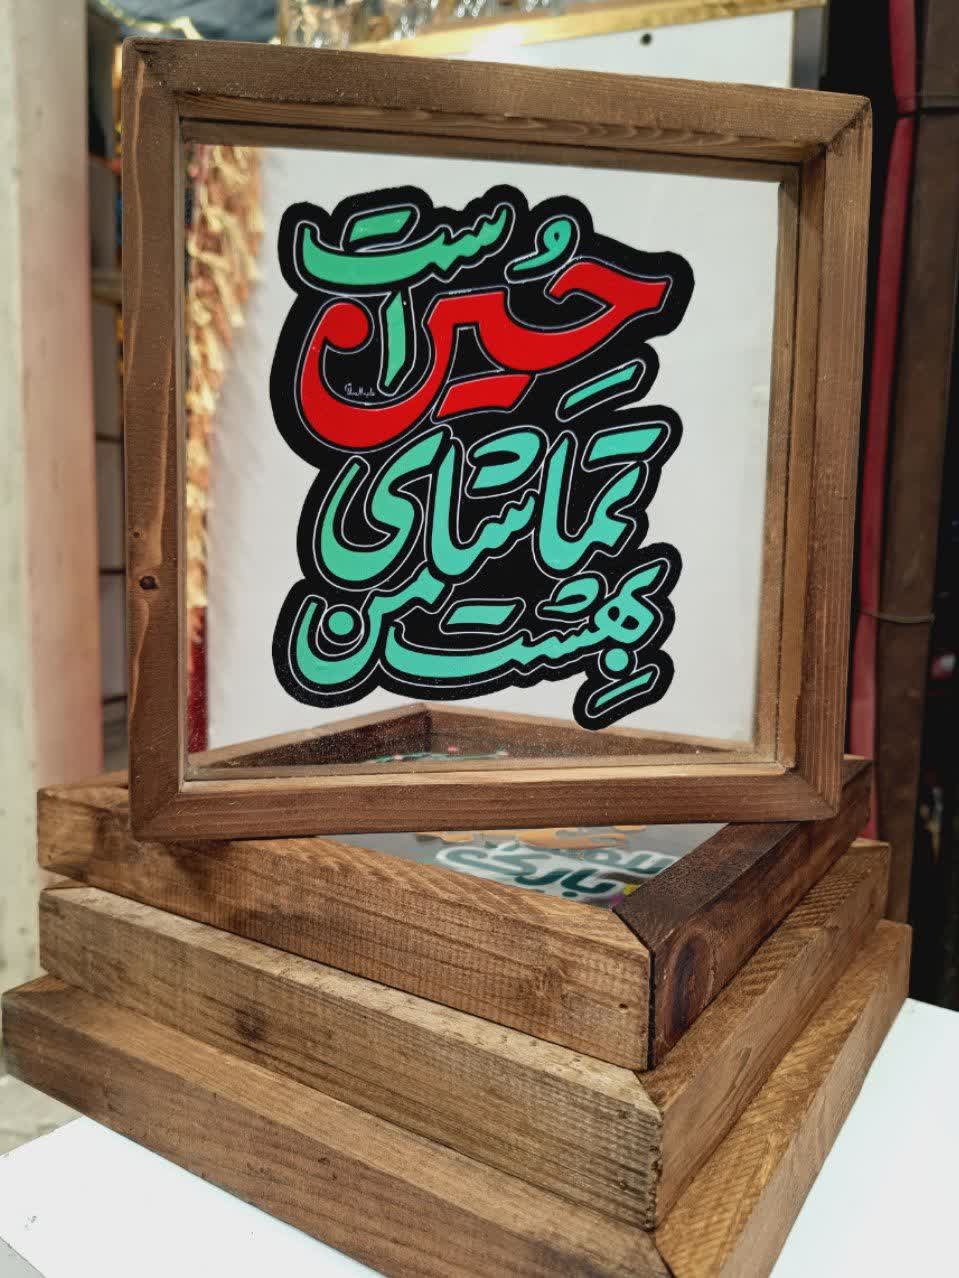 حُسین است
تماشای
بهِشتِ من